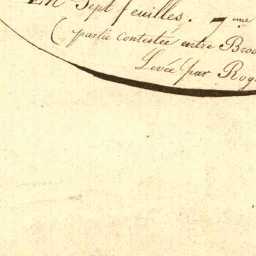 En Sept feuilles. 7ème
(partie contestée entre Brou
Levée par Rog